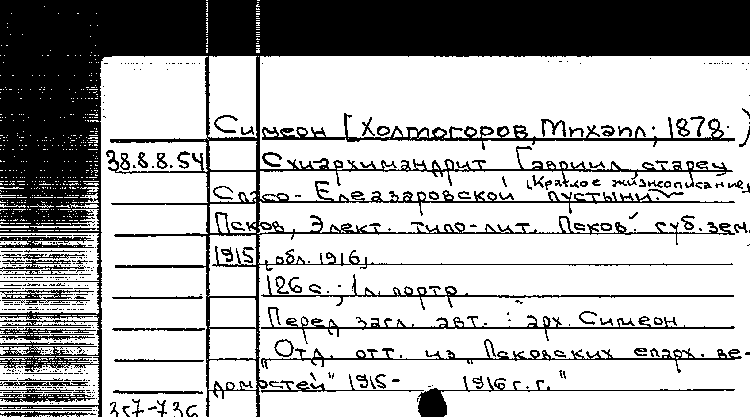 Симеон [Холмогоров, Михаил; 1878- ]
38.8.8.54 Схиархимандрит Гавриил, старец
Спасо-Елеазаровской пустыни. (Краткое жизнеописание)
Псков, Элект. типо-лит. Псков. губ. зем.
1915, [обл. 1916].
126 с.; 1 л. портр.
Перед загл. авт. : арх. Симеон.
"Отд. отт. из „Псковских епарх. ве-
домостей" 1915- 1916 г.г."
357-736